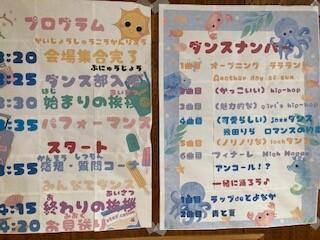 プログラム
かいじょうしゅうごうかんりょう
3:20 会場集合完了
ぶにゅうじょう
3:25 ダンス部入
はじ あいさつ
3:30 始まりの挨拶
3:35 パフォーマンス
スタート
かんそう しつもん
3:55 感想・質問コーナー
みんなで
あいさつ
4:15 お終わりの挨拶
4:20 お見送り
ダンスナンバー
1曲目 オープニング ラ・ラ・ランド
Another day of sun
2曲目 (かっこいい) hip-hop
3曲目 (魅力的な) girl's hip-hop
4曲目 (可愛らしい) Jazzダンス
幾田りら ロマンスの約束
5曲目 (ノリノリな) lockダンス
6曲目 フィナーレ High Hopes
アンコール!?
一緒に踊ろう♪
1曲目 ラップはとまらない
2曲目 青と夏